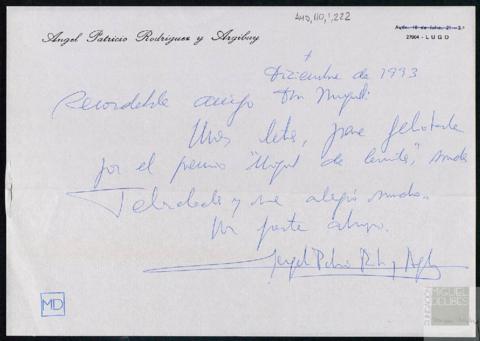 AMD,110,1,222
Angel Patricio Rodriguez y Argibay
Avda. 18 de Julio, 21 - 2.º
27004 - LUGO
+
Diciembre de 1993
Recordable amigo Don Miguel:
Unas letras, para felicitarle
por el premio "Miguel de Cervantes",
Felicidades y me alegro mucho.
Un fuerte abrazo.
MD
FUNDACIÓN
MIGUEL
DELIBES